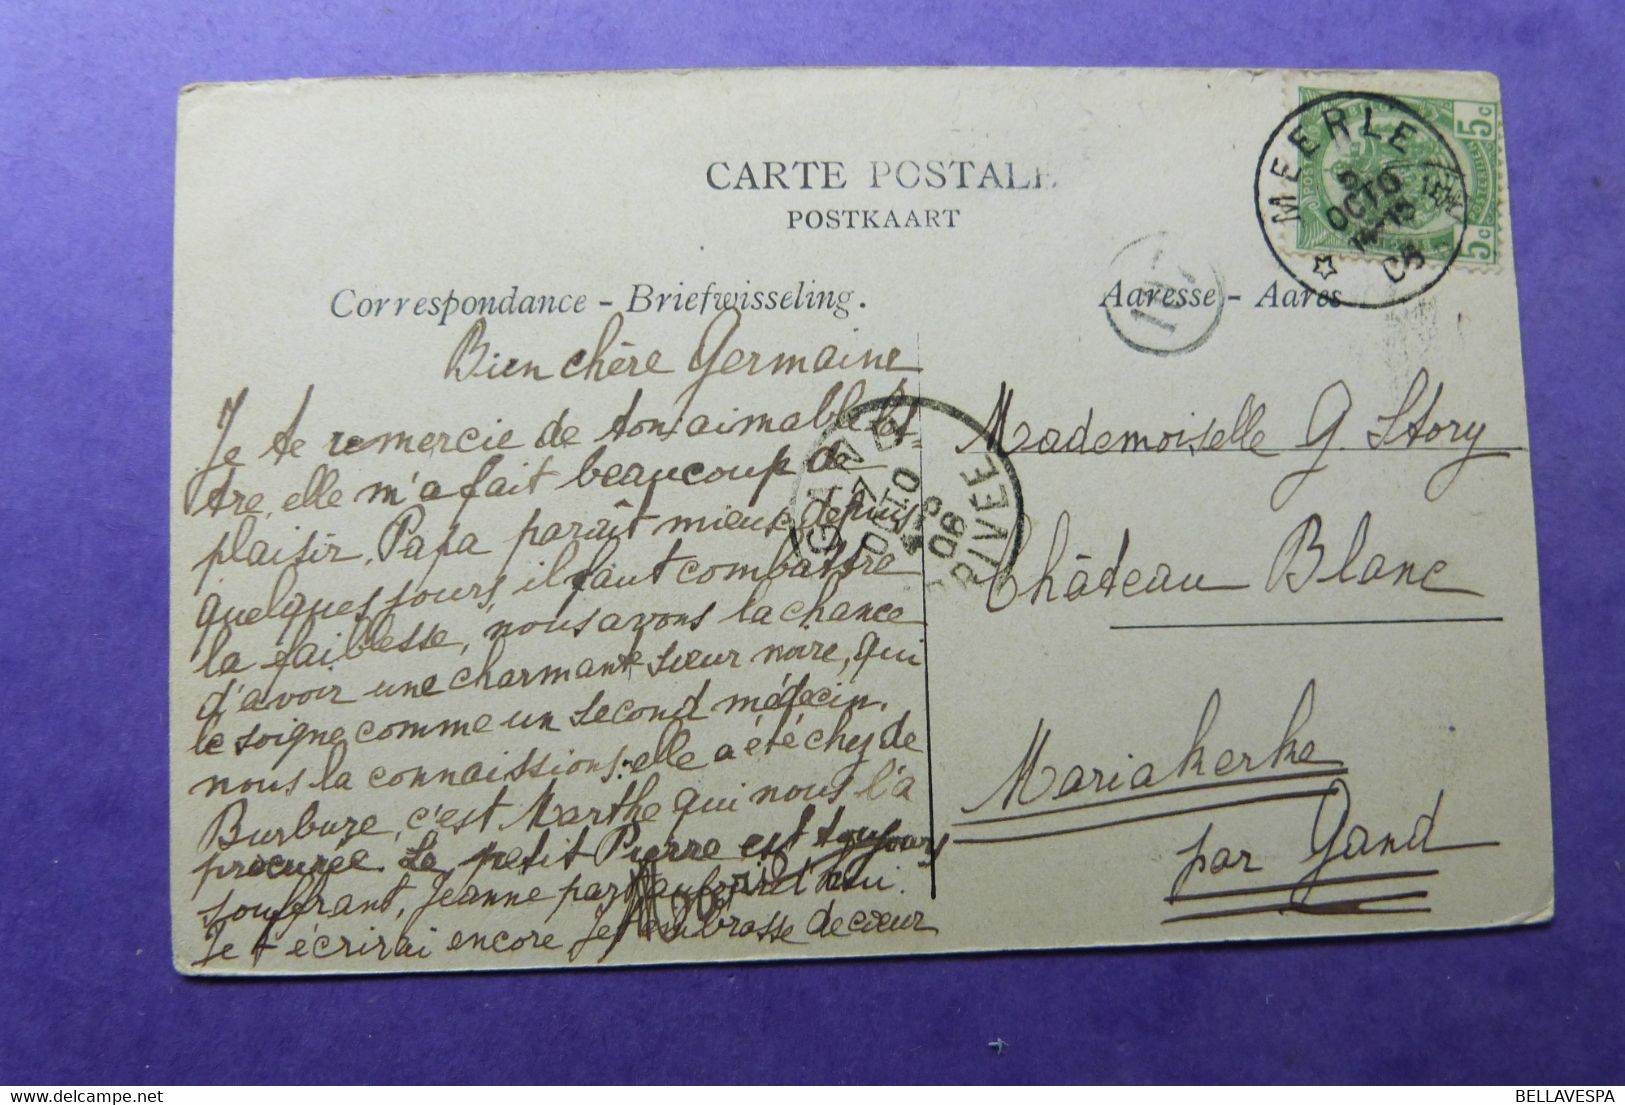 CARTE POSTALE
POSTKAART
Correspondance - Briefwisseling.
Adresse - Adres
MEERLE
OCTO
5c
5c
GAND
7
OCTO
06
ARRIVEE
Bien chère Germaine
Je te remercie de ton aimable let-
tre, elle m'a fait beaucoup de
plaisir. Papa paraît mieux depuis
quelques jours, il faut combattre
la faiblesse, nous avons la chance
d'avoir une charmante sœur noire, qui
le soigne comme un second médecin.
nous la connaissions: elle a été chez de
Burbure, c'est Marthe qui nous l'a
procurée. Le petit Pierre est toujours
souffrant, Jeanne part aujourd'hui.
Je t'écrirai encore Je t'embrasse de cœur
Mademoiselle G. Story
Château Blanc
Mariakerke
par Gand
BELLAVESPA